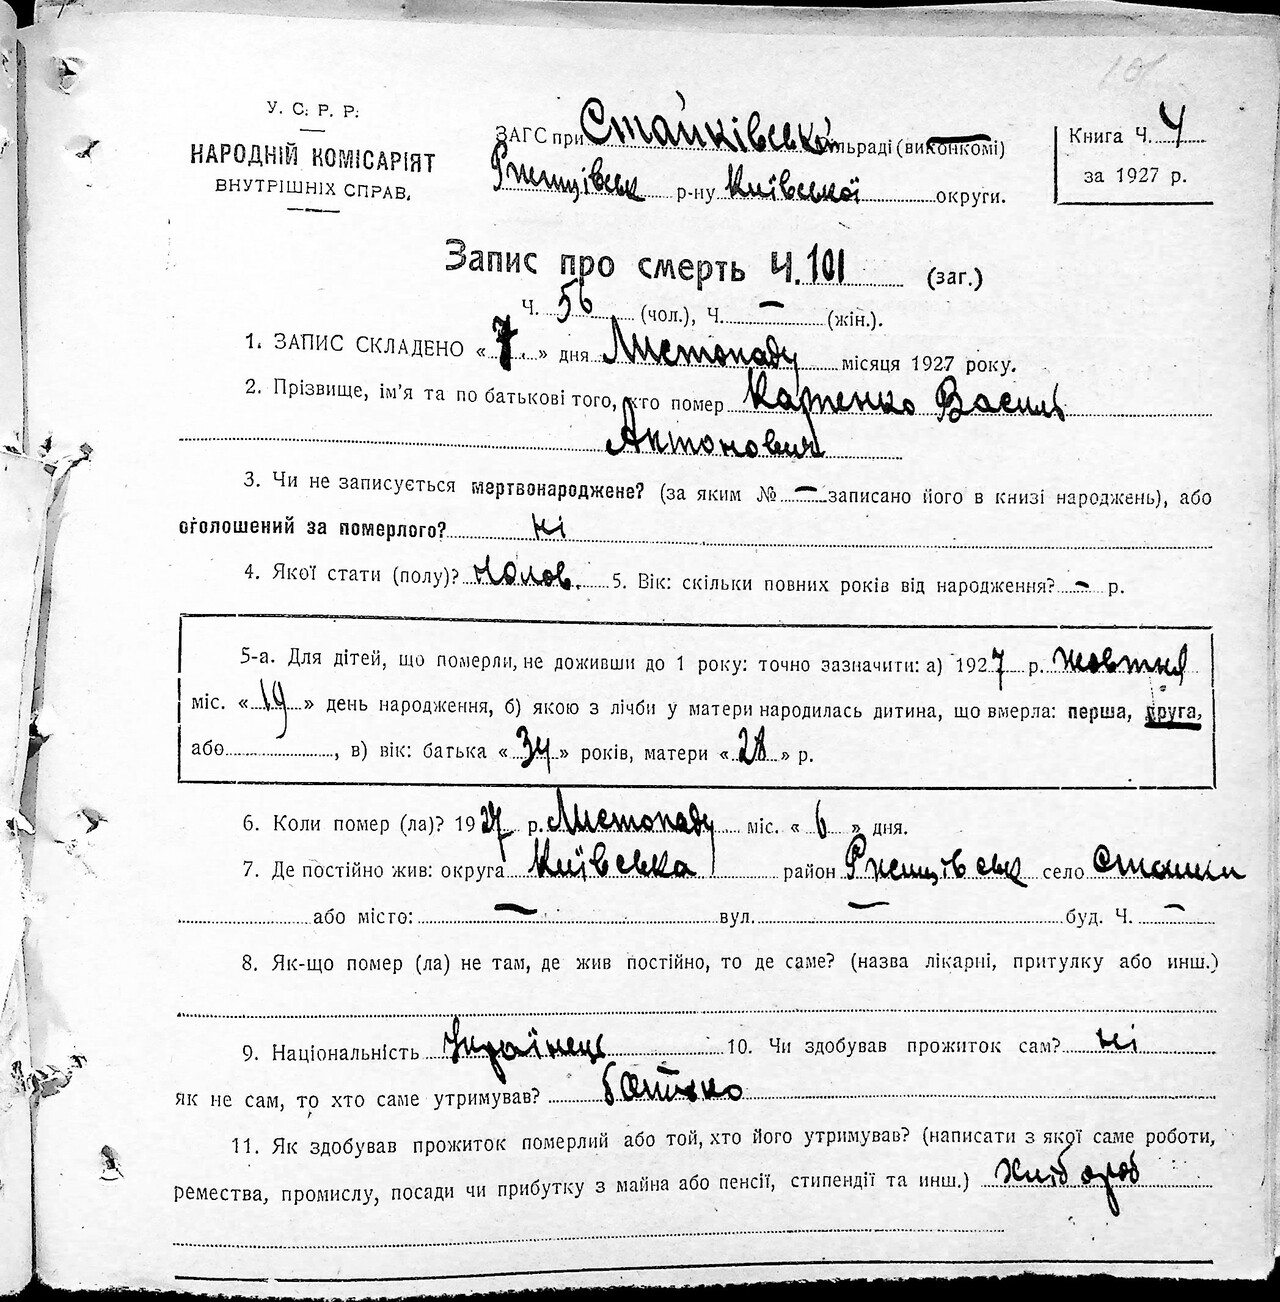 У. С. Р. Р.
НАРОДНІЙ КОМІСАРІЯТ
ВНУТРІШНІХ СПРАВ.
ЗАГС при Стайківській сільраді (виконкомі)
Ржищівськ р-ну Київської округи.
Книга Ч. 4
за 1927 р.
Запис про смерть Ч. 101 (заг.)
Ч. 56 (чол.), Ч. — (жін.).
1. ЗАПИС СКЛАДЕНО « 7 » дня Листопаду місяця 1927 року.
2. Прізвище, ім’я та по батькові того, хто помер Карпенко Василь
Антонович
3. Чи не записується мертвонароджене? (за яким № — записано його в книзі народжень), або
оголошений за померлого? ні
4. Якої стати (полу)? чолов. 5. Вік: скільки повних років від народження? — р.
5-а. Для дітей, що померли, не доживши до 1 року: точно зазначити: а) 1927 р. жовтня
міс. « 19 » день народження, б) якою з лічби у матери народилась дитина, що вмерла: перша, друга,
або , в) вік: батька « 34 » років, матери « 28 » р.
6. Коли помер (ла)? 1927 р. Листопаду міс. « 6 » дня.
7. Де постійно жив: округа Київська район Ржищівськ село Стайки
або місто: — вул. — буд. Ч. —
8. Як-що помер (ла) не там, де жив постійно, то де саме? (назва лікарні, притулку або инш.)
9. Національність Українець 10. Чи здобував прожиток сам? ні
як не сам, то хто саме утримував? батько
11. Як здобував прожиток померлий або той, хто його утримував? (написати з якої саме роботи,
ремества, промислу, посади чи прибутку з майна або пенсії, стипендії та инш.) хлібороб